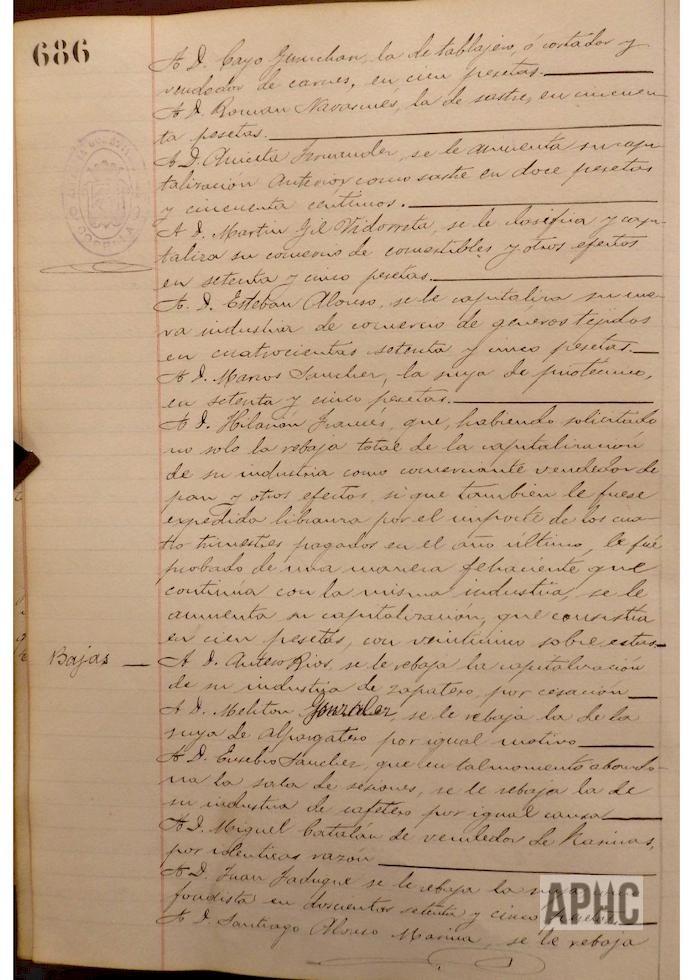 686
A D. Cayo , la de tablajero, ó cortador y
vendedor de carnes, en cien pesetas.
A D. Roman Navascués, la de sastre, en cincuen-
ta pesetas.
A D. Aniceto Fernandez, se le aumenta su capi-
talización anterior como sastre en doce pesetas
y cincuenta centimos.
A D. Martin Gil Vidorreta, se le clasifica y capi-
taliza su comercio de comestibles y otros efectos
en setenta y cinco pesetas.
A D. Esteban Alonso, se le capitaliza su nue-
va industria de comercio de géneros tejidos
en cuatrocientas setenta y cinco pesetas.
A D. Marcos Sanchez, la suya de pirotécnico,
en setenta y cinco pesetas.
A D. Hilarión , que, habiendo solicitado
no solo la rebaja total de la capitalización
de su industria como comerciante vendedor de
pan y otros efectos, si que tambien le fuese
expedida libranza por el importe de los cua-
tro trimestres pagados en el año último, le fué
probado de una manera fehaciente que
continúa con la misma industria, se le
aumenta su capitalización, que consistia
en cien pesetas, con veinticinco sobre estas.
Bajas — A D. Antero Rios, se le rebaja la capitalización
de su industria de zapatero, por cesación
A D. Meliton Gonzalez, se le rebaja la de la
suya de Alpargatero por igual motivo
A D. Eusebio Sanchez, que en tal momento abando-
na la sala de sesiones, se le rebaja la de
su industria de cafetero por igual causa
A D. Miguel Catalán de vendedor de Harinas,
por identicas razon
A D. Juan se le rebaja la suya
fondista en doscientas setenta y cinco pesetas
A D. Santiago Alonso Marina, se le rebaja
APHC